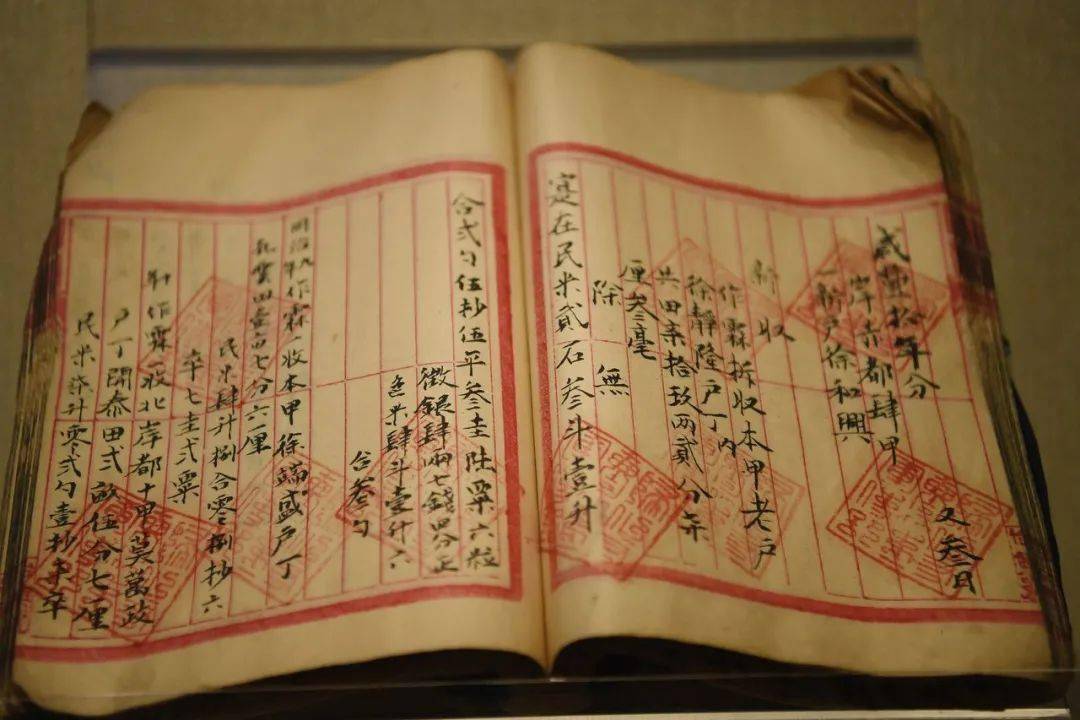 咸豐拾年分
又叁月
岸赤都肆甲
一新戶徐和興
新收
作霖拆收本甲老戶
徐靜隆戶丁內
共田柒拾玖兩貳分柒
厘叁毫
除無
寔在民米貳石叁斗壹升
合弍勺伍抄伍平叁圭陸粟六粒
徵銀肆兩七錢
色米肆斗壹升六
合叁勺
作霖一收本甲徐端盛戶丁
七分六厘
民米肆計捌合零捌抄六
卒七圭弍粟
作霖收北岸都十甲莫萬政
戶丁開泰田弍畝伍分七厘
民米柒計零弍勺壹抄